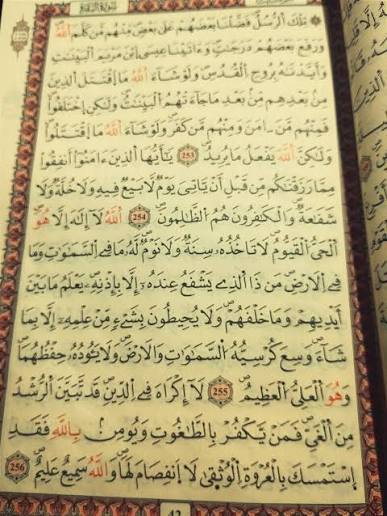 سُورَةُ الْبَقَرَةِ
تِلْكَ اَ۬لرُّسُلُ فَضَّلْنَا بَعْضَهُمْ عَلَىٰ بَعْضٍۖ مِّنْهُم مَّن كَلَّمَ اَ۬للَّهُ
وَرَفَعَ بَعْضَهُمْ دَرَجَٰتٍۖ وَءَاتَيْنَا عِيسَى اَ۪بْنَ مَرْيَمَ اَ۬لْبَيِّنَٰتِ
وَأَيَّدْنَٰهُ بِرُوحِ اِ۬لْقُدُسِۖ وَلَوْ شَآءَ اَ۬للَّهُ مَا اَ۪قْتَتَلَ اَ۬لذِينَ
مِنۢ بَعْدِهِم مِّنۢ بَعْدِ مَا جَآءَتْهُمُ اُ۬لْبَيِّنَٰتُۖ وَلَٰكِنِ اِ۪خْتَلَفُواْ
فَمِنْهُم مَّنَ ـامَنَ وَمِنْهُم مَّن كَفَرَۖ وَلَوْ شَآءَ اَ۬للَّهُ مَا اَ۪قْتَتَلُواْ
وَلَٰكِنَّ اَ۬للَّهَ يَفْعَلُ مَا يُرِيدُۖ 253 يَٰٓأَيُّهَا اَ۬لذِينَ ءَامَنُوٓاْ أَنفِقُواْ
مِمَّا رَزَقْنَٰكُم مِّن قَبْلِ أَنْ يَّاتِيَ يَوْمٌ لَّا بَيْعٌ فِيهِ وَلَا خُلَّةٌ وَلَا
شَفَٰعَةٌۖ وَالْكَٰفِرُونَ هُمُ اُ۬لظَّٰلِمُونَۖ 254 اَ۬للَّهُ لَآ إِلَٰهَ إِلَّا هُوَ
اَ۬لْحَيُّ اُ۬لْقَيُّومُۖ لَا تَاخُذُهُۥ سِنَةٌ وَلَا نَوْمٌۖ لَّهُۥ مَا فِے اِ۬لسَّمَٰوَٰتِ وَمَا
فِے اِ۬لَارْضِۖ مَن ذَا اَ۬لذِے يَشْفَعُ عِندَهُۥٓ إِلَّا بِإِذْنِهِۦۖ يَعْلَمُ مَا بَيْنَ
أَيْدِيهِمْ وَمَا خَلْفَهُمْۖ وَلَا يُحِيطُونَ بِشَےْءٍ مِّنْ عِلْمِهِۦٓ إِلَّا بِمَا
شَآءَۖ وَسِعَ كُرْسِيُّهُ اُ۬لسَّمَٰوَٰتِ وَالَارْضَۖ وَلَا يَـُٔودُهُۥ حِفْظُهُمَاۖ
وَهُوَ اَ۬لْعَلِيُّ اُ۬لْعَظِيمُۖ 255 لَآ إِكْرَاهَ فِے اِ۬لدِّينِۖ قَد تَّبَيَّنَ اَ۬لرُّشْدُ
مِنَ اَ۬لْغَيِّۖ فَمَنْ يَّكْفُرْ بِالطَّٰغُوتِ وَيُومِنۢ بِاللَّهِ فَقَدِ
اِ۪سْتَمْسَكَ بِالْعُرْوَةِ اِ۬لْوُثْقَىٰ لَا اَ۪نفِصَامَ لَهَاۖ وَاللَّهُ سَمِيعٌ عَلِيمٌۖ 256
42